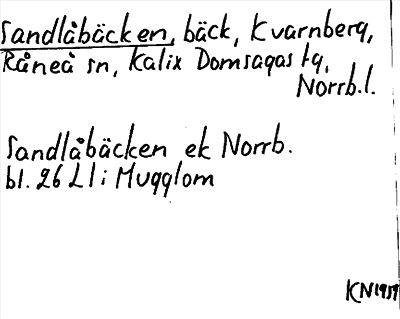 Sandlåbäcken, bäck, Kvarnberg,
Råneå sn, Kalix Domsagas tg,
Norrb.l.
Sandlåbäcken ek Norrb.
bl. 26 L1 i Mugglom
KN1959